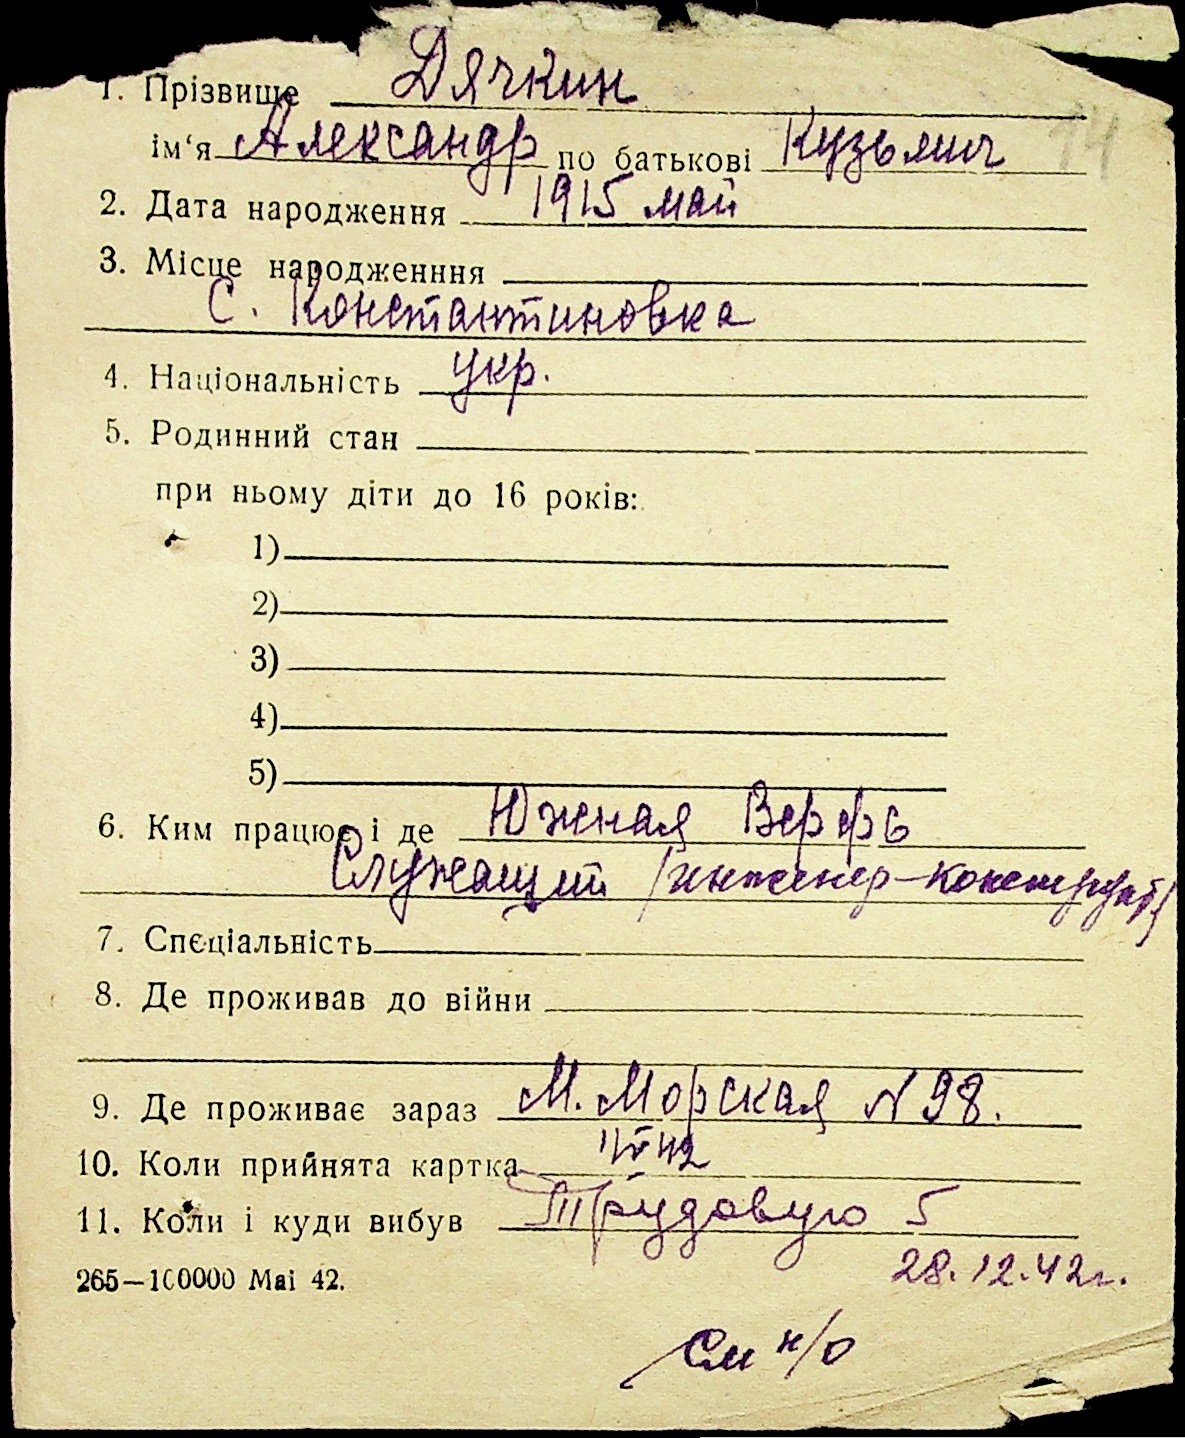 1. Прізвище Дячкин
14
ім‘я Александр по батькові Кузьмич
2. Дата народження 1915 май
3. Місце народженння
С. Константиновка
4. Національність укр.
5. Родинний стан
при ньому діти до 16 років:
1)
2)
3)
4)
5)
6. Ким працює і де Южная Верфь
Служащий /инженер-конструкт/
7. Спєціальність
8. Де проживав до війни
9. Де проживає зараз М. Морская N 98.
10. Коли прийнята картка 42
11. Коли і куди вибув Трудовую 5
265—100000 Маі 42.
28.12.42г.
См н/о